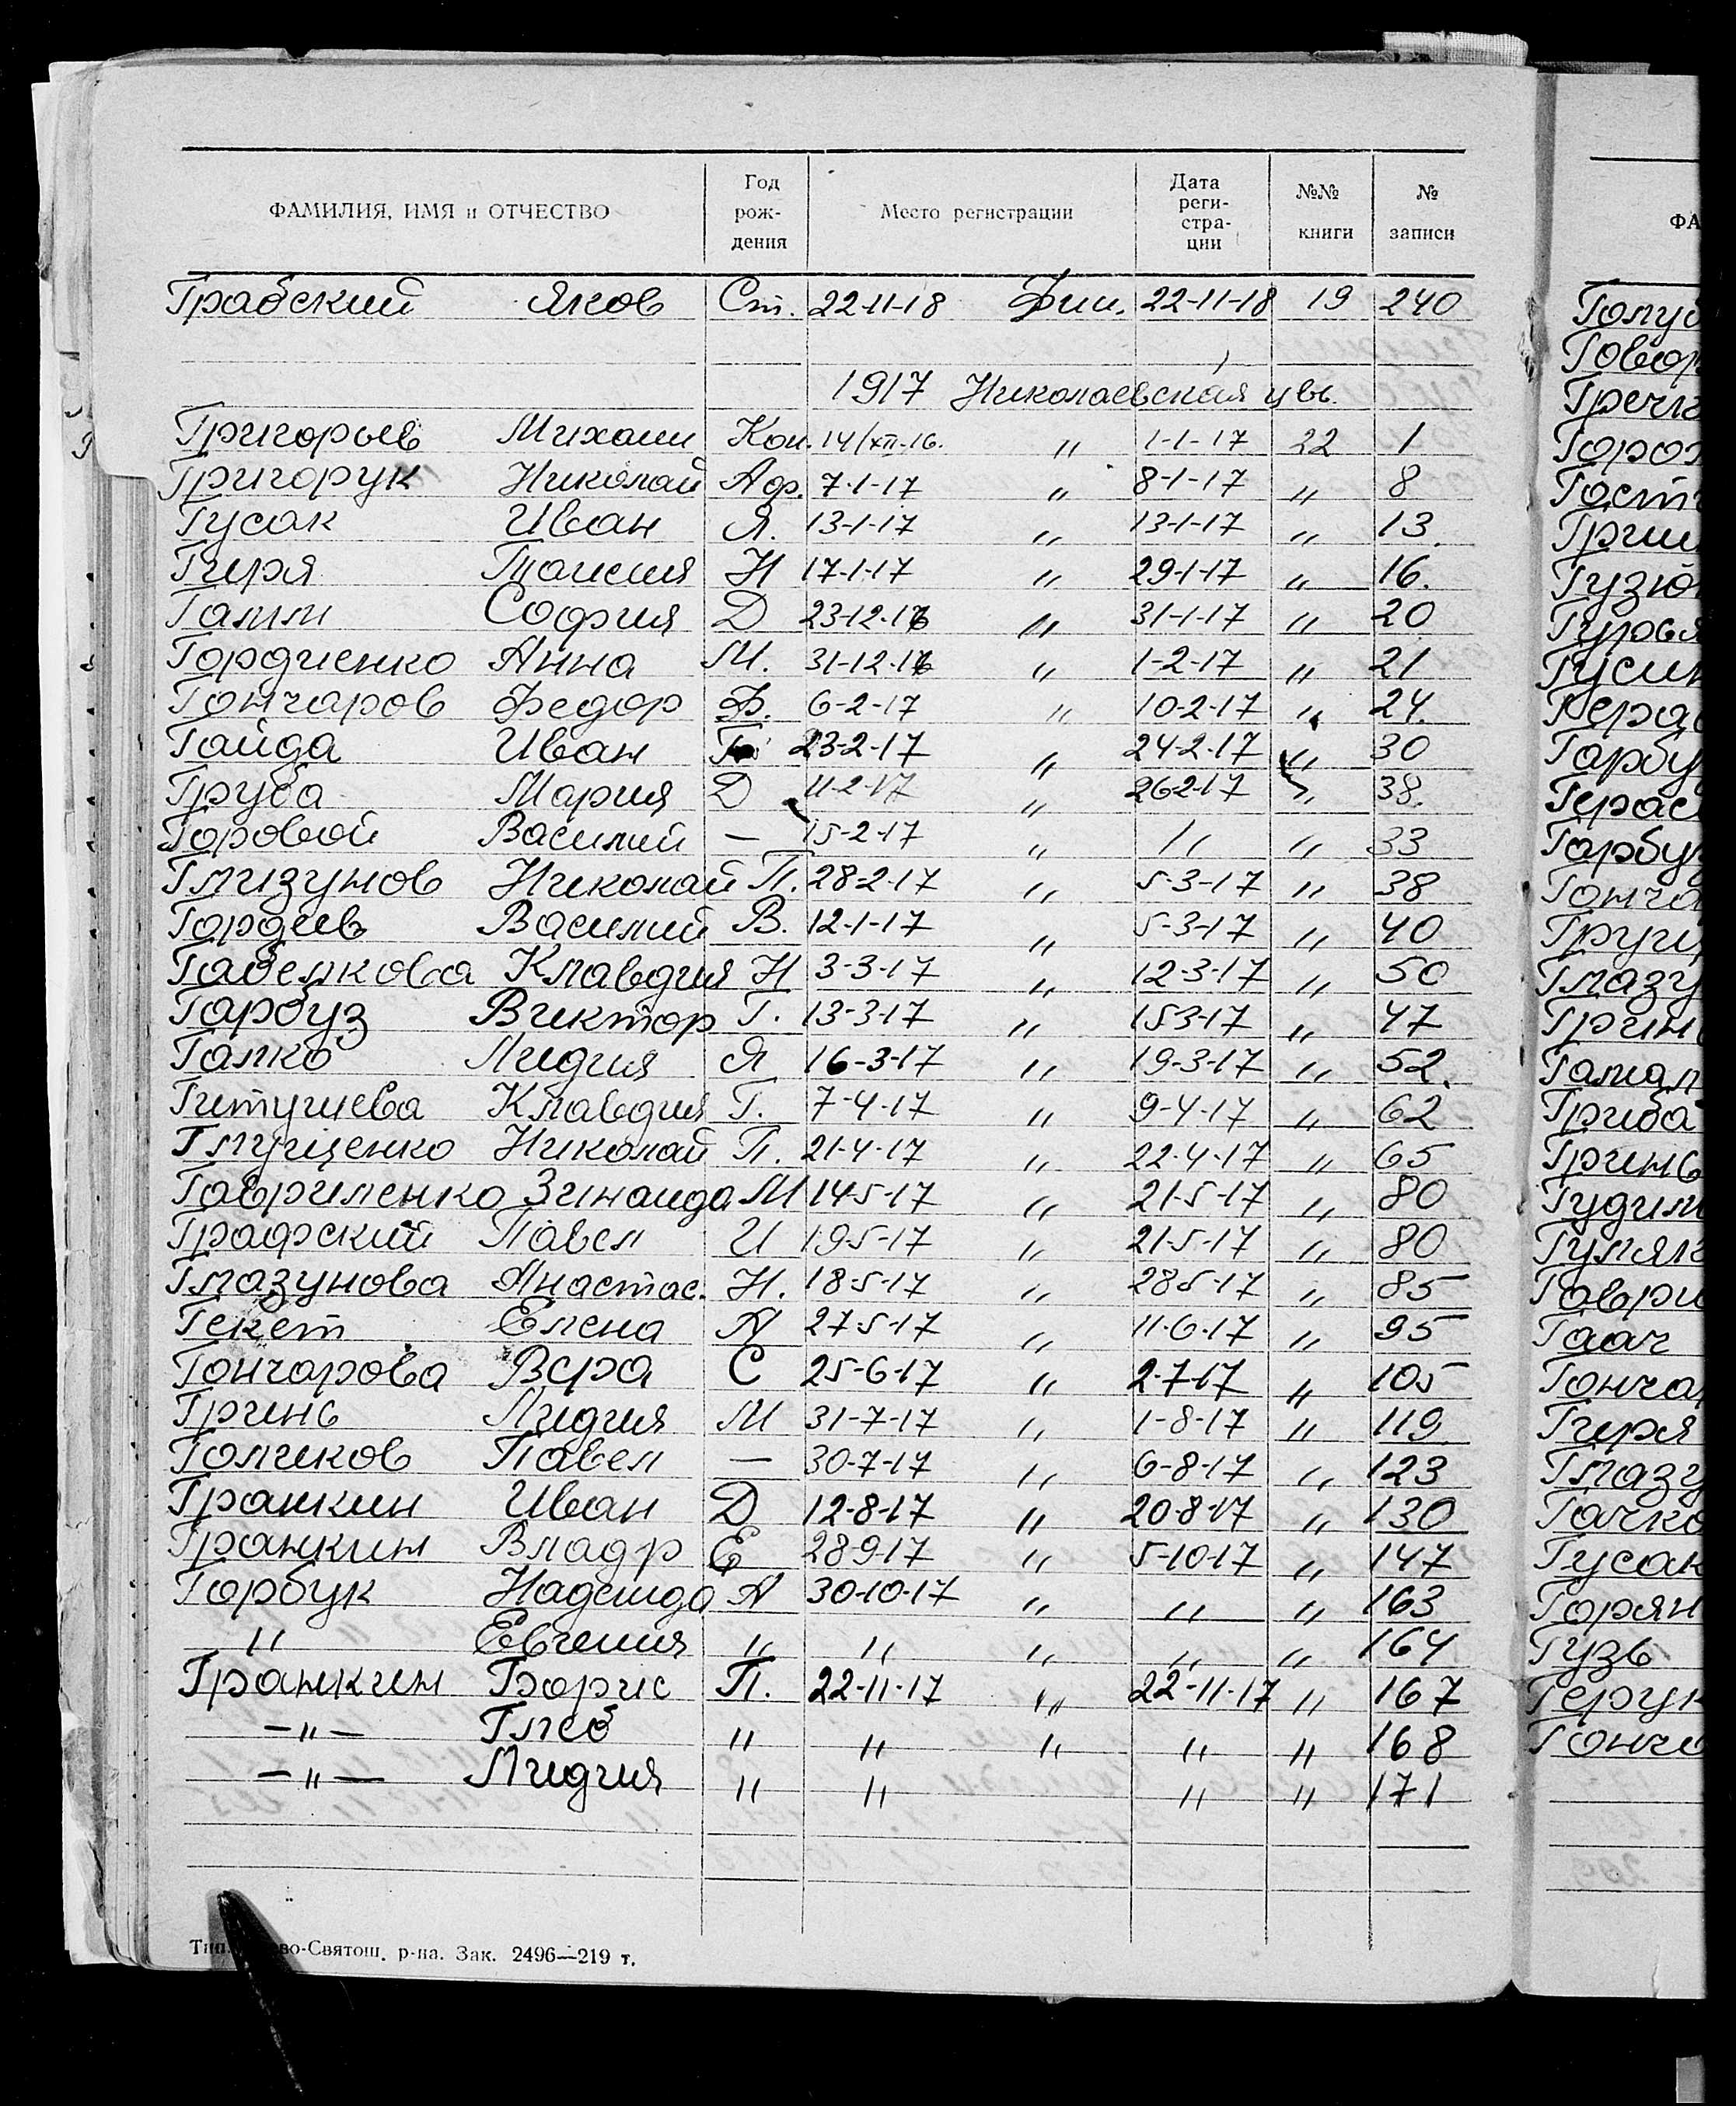 ФАМИЛИЯ, ИМЯ и ОТЧЕСТВО Год рож- дения Место регистрации Дата реги- стра- ции №№ книги № записи
Грабский Яков Ст. 22-11-18 Дим. 22-11-18 19 240
1917 Николаевская црв.
Григорьев Михаил Кон. 14/XII-16. " 1-1-17 22 1
Григорук Николай Аф. 7-1-17 " 8-1-17 " 8
Гусак Иван Я. 13-1-17 " 13-1-17 " 13.
Гиря Таисия Н 17-1-17 " 29-1-17 " 16.
Галли София Д 23-12-16 " 31-1-17 " 20
Гордиенко Анна М. 31-12-16 " 1-2-17 " 21
Гончаров Федор Ф. 6-2-17 " 10-2-17 " 24.
Гайда Иван 23-2-17 " 24-2-17 " 30
Груба Мария Д 11-2-17 " 26-2-17 " 38.
Горовой Василий — 15-2-17 " " " 33
Глизунов Николай П. 28-2-17 " 5-3-17 " 38
Гордеев Василий В. 12-1-17 " 5-3-17 " 40
Габелкова Клавдия Н 3-3-17 " 12-3-17 " 50
Гарбуз Виктор Г. 13-3-17 " 15-3-17 " 47
Галко Лидия Я 16-3-17 " 19-3-17 " 52.
Клавдия Г. 7-4-17 " 9-4-17 " 62
Глущенко Николай П. 21-4-17 " 22-4-17 " 65
Гавриленко Зинаида М 14-5-17 " 21-5-17 " 80
Графский Павел И 19-5-17 " 21-5-17 " 80
Глазунова Анастас. Н. 18-5-17 " 28-5-17 " 85
Гекет Елена А 27-5-17 " 11-6-17 " 95
Гончарова Вера С 25-6-17 " 2-7-17 " 105
Гринь Лидия М 31-7-17 " 1-8-17 " 119
Голиков Павел — 30-7-17 " 6-8-17 " 123
Гранкин Иван Д 12-8-17 " 20-8-17 " 130
Гранкин Владр Е 28-9-17 " 5-10-17 " 147
Горбук Надежда А 30-10-17 " " " 163
" Евгения " " " " " 164
Гранкин Борис П. 22-11-17 " 22-11-17 " 167
—"— Глеб " " " " " 168
—"— Лидия " " " " 171
Тип. во-Святош. р-на. Зак. 2496—219 т.
ФА
Голуб
Говор
Гречк
Горо
Гост
Гриш
Гузю
Гурья
Гусин
Гера
Гарбу
Герас
Гарбу
Гонча
Глазу
Грин
Гамал
Гриба
Гринь
Гудим
Гуляк
Гаври
Гаач
Гонча
Гиря
Глазу
Гачко
Гусак
Горян
Гузь
Герук
Гонча